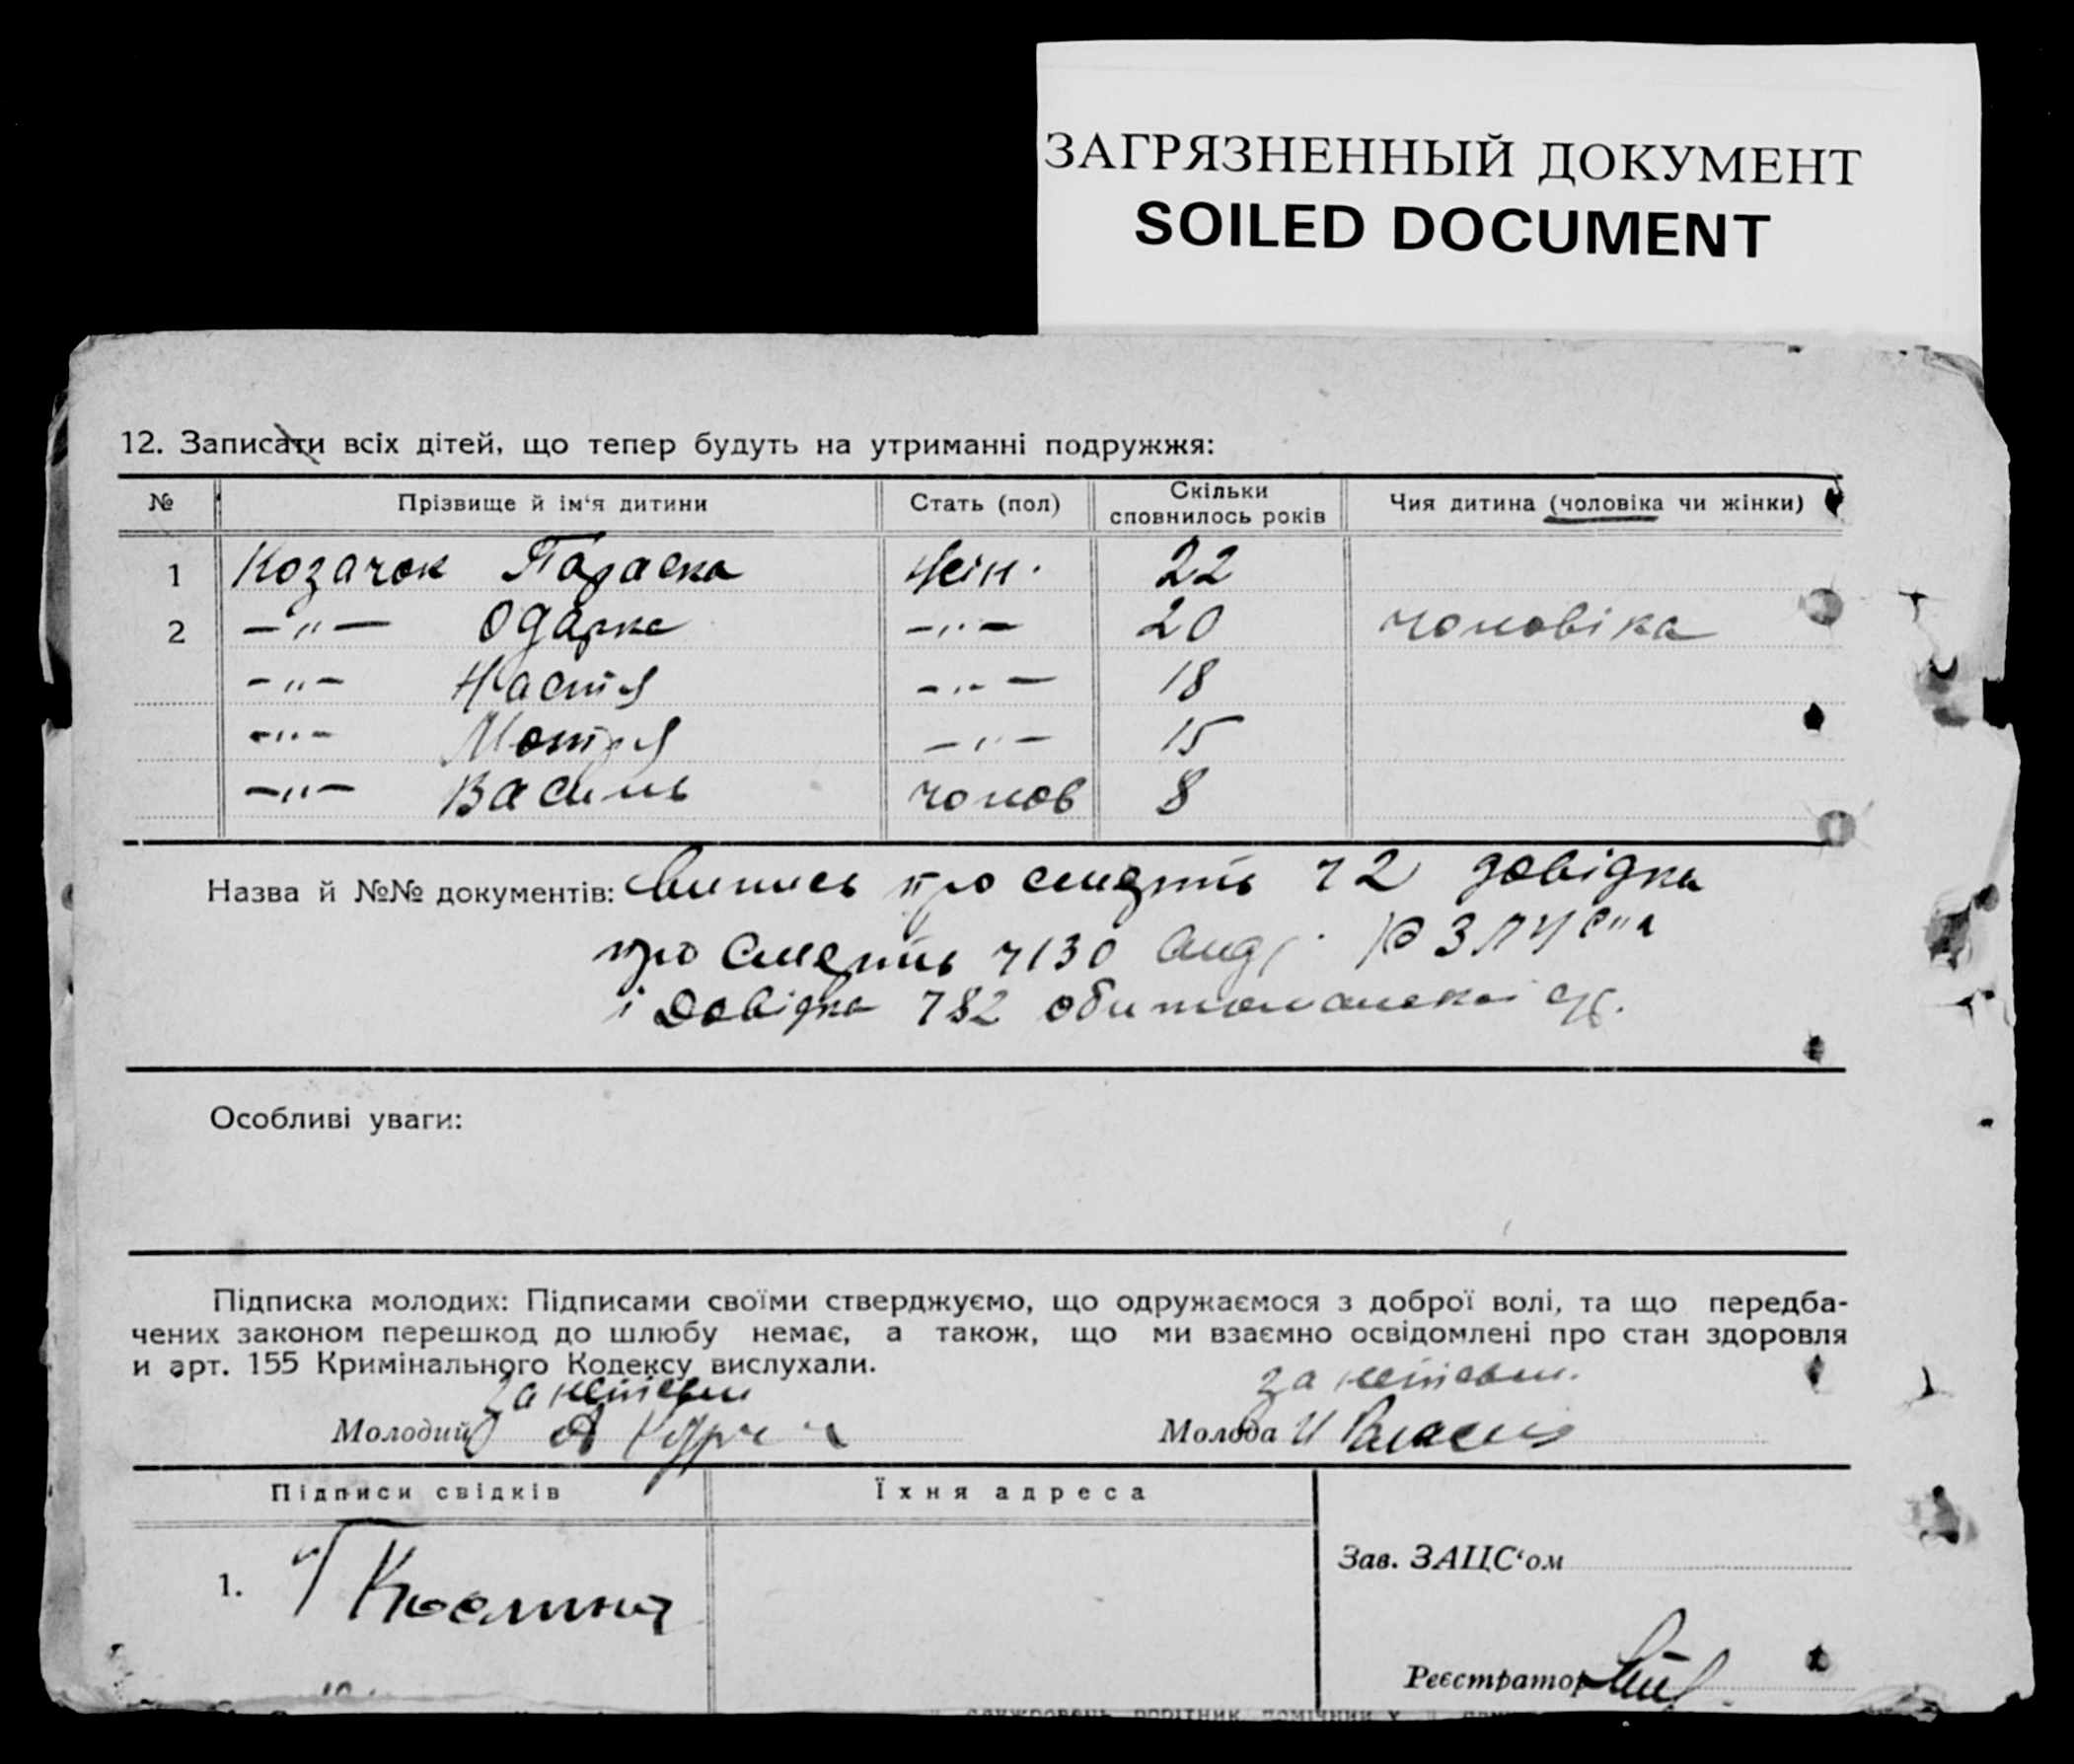 ЗАГРЯЗНЕННЫЙ ДОКУМЕНТ
SOILED DOCUMENT
12. Записати всіх дітей, що тепер будуть на утриманні подружжя:
№ Прізвище й ім‘я дитини Стать (пол) Скільки сповнилось років Чия дитина (чоловіка чи жінки)
1 Козачок Параска жін. 22
2 —"— Одарка —"— 20 чоловіка
—"— Настя —"— 18
—"— Мотря —"— 15
—"— Василь чолов 8
Назва й №№ документів: Випись про смерть ч 2 довідка
про смерть ч 130
і довідка 782
Особливі уваги:
Підписка молодих: Підписами своїми стверджуємо, що одружаємося з доброї волі, та що передба-
чених законом перешкод до шлюбу немає, а також, що ми взаємно освідомлені про стан здоровля
и арт. 155 Кримінального Кодексу вислухали.
за неписьм за неписьм.
Молодий Молода
Підписи свідків Їхня адреса
Зав. ЗАЦС‘ом
1.
Реєстратор